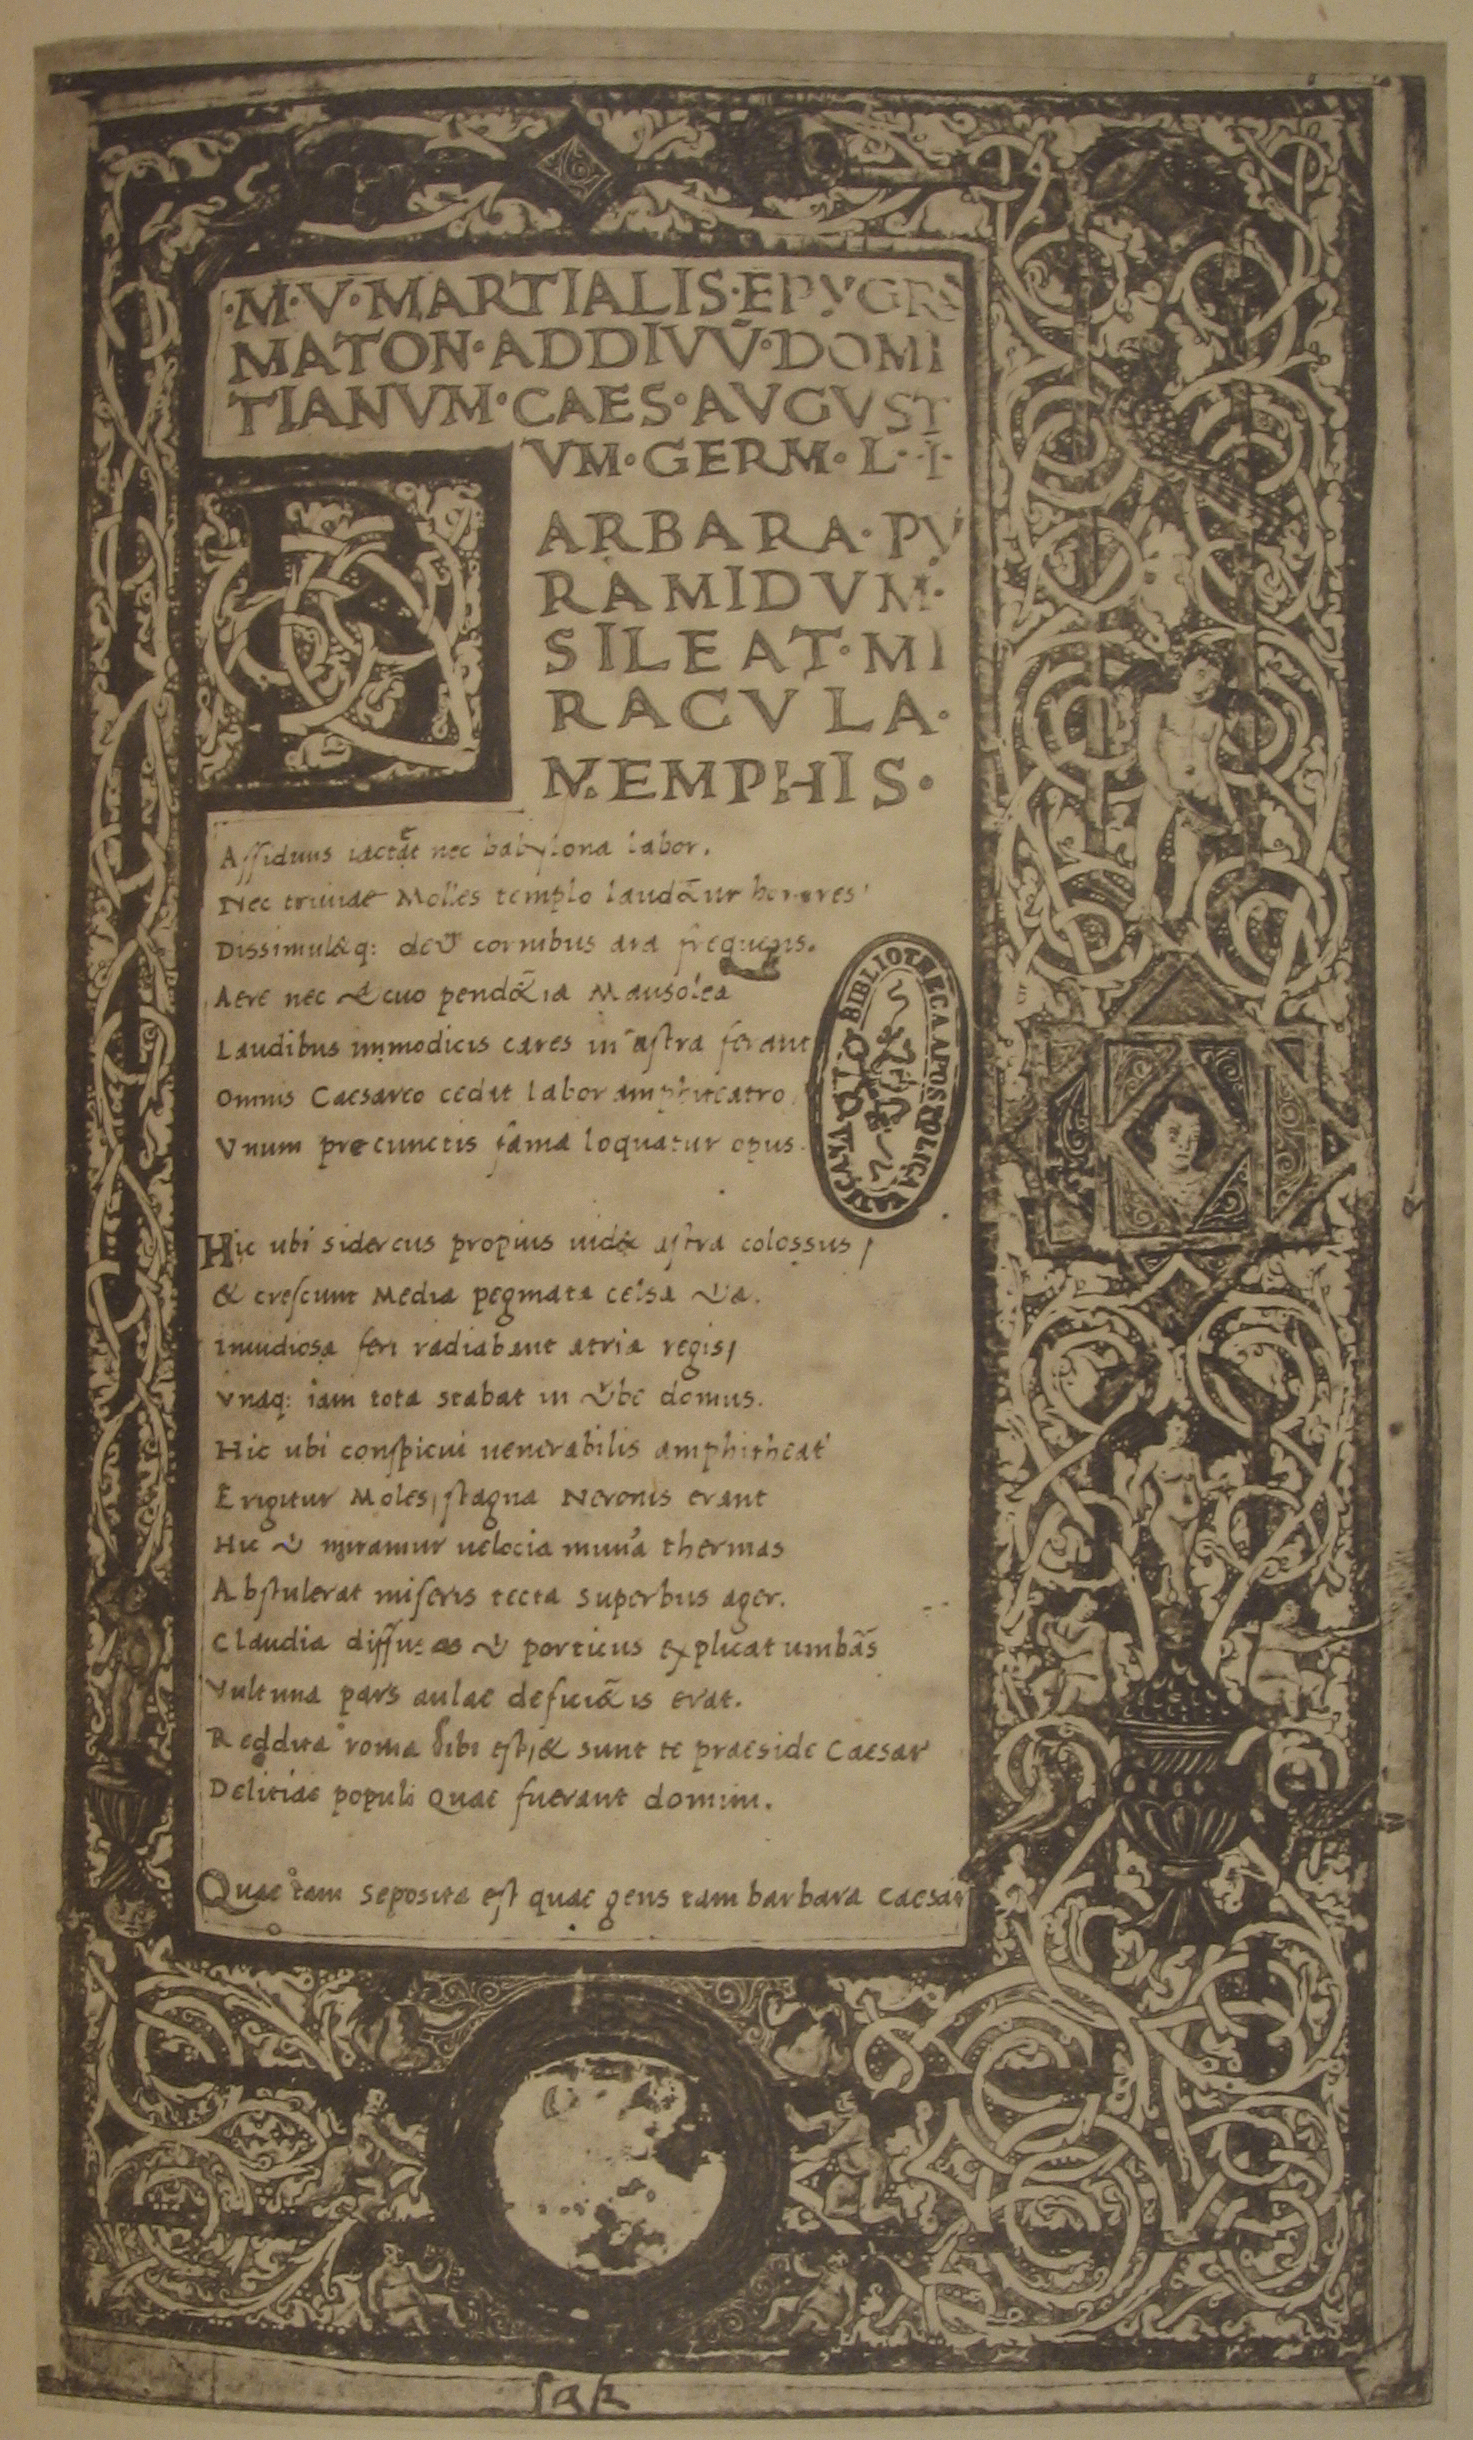 ·M·V·MARTIALIS·EPYGRA
MATON·ADDIVVṼ·DOMI
TIANVM·CAES·AVGVST
VM·GERM·L·I·
BARBARA·PY
RAMIDVM·
SILEAT·MI
RACVLA·
MEMPHIS·
Assiduus iactæt nec babylona labor.
Nec triuiae Molles templo laudãtur honores
Dissimul&q: deũ cornibus ara frequens.
Aere nec uacuo pend&ia Mausolea
Laudibus immodicis cares in astra ferant
Omnis Caesareo cedit labor amphiteatro
Vnum pre cunctis fama loquatur opus.
BIBLIOTECA APOSTOLICA VATICANA
Hic ubi sidereus propius uid& astra colossus /
& crescunt Media pegmata celsa uia.
inuidiosa feri radiabant atria regis /
vnaq: iam tota stabat in urbe domus.
Hic ubi conspicui uenerabilis amphitheat'
Erigitur Moles / stagna Neronis erant
Hic ubi miramur uelocia mun'a thermas
Abstulerat miseris tecta superbus ager.
Claudia diffusas ubi porticus explicat umbãs
Vltima pars aulae defici&is erat.
Reddita roma sibi est / & sunt te praeside Caesar
Delitiae populi Quae fuerant domini.
Quae tam seposita est quae gens tam barbara Caesar